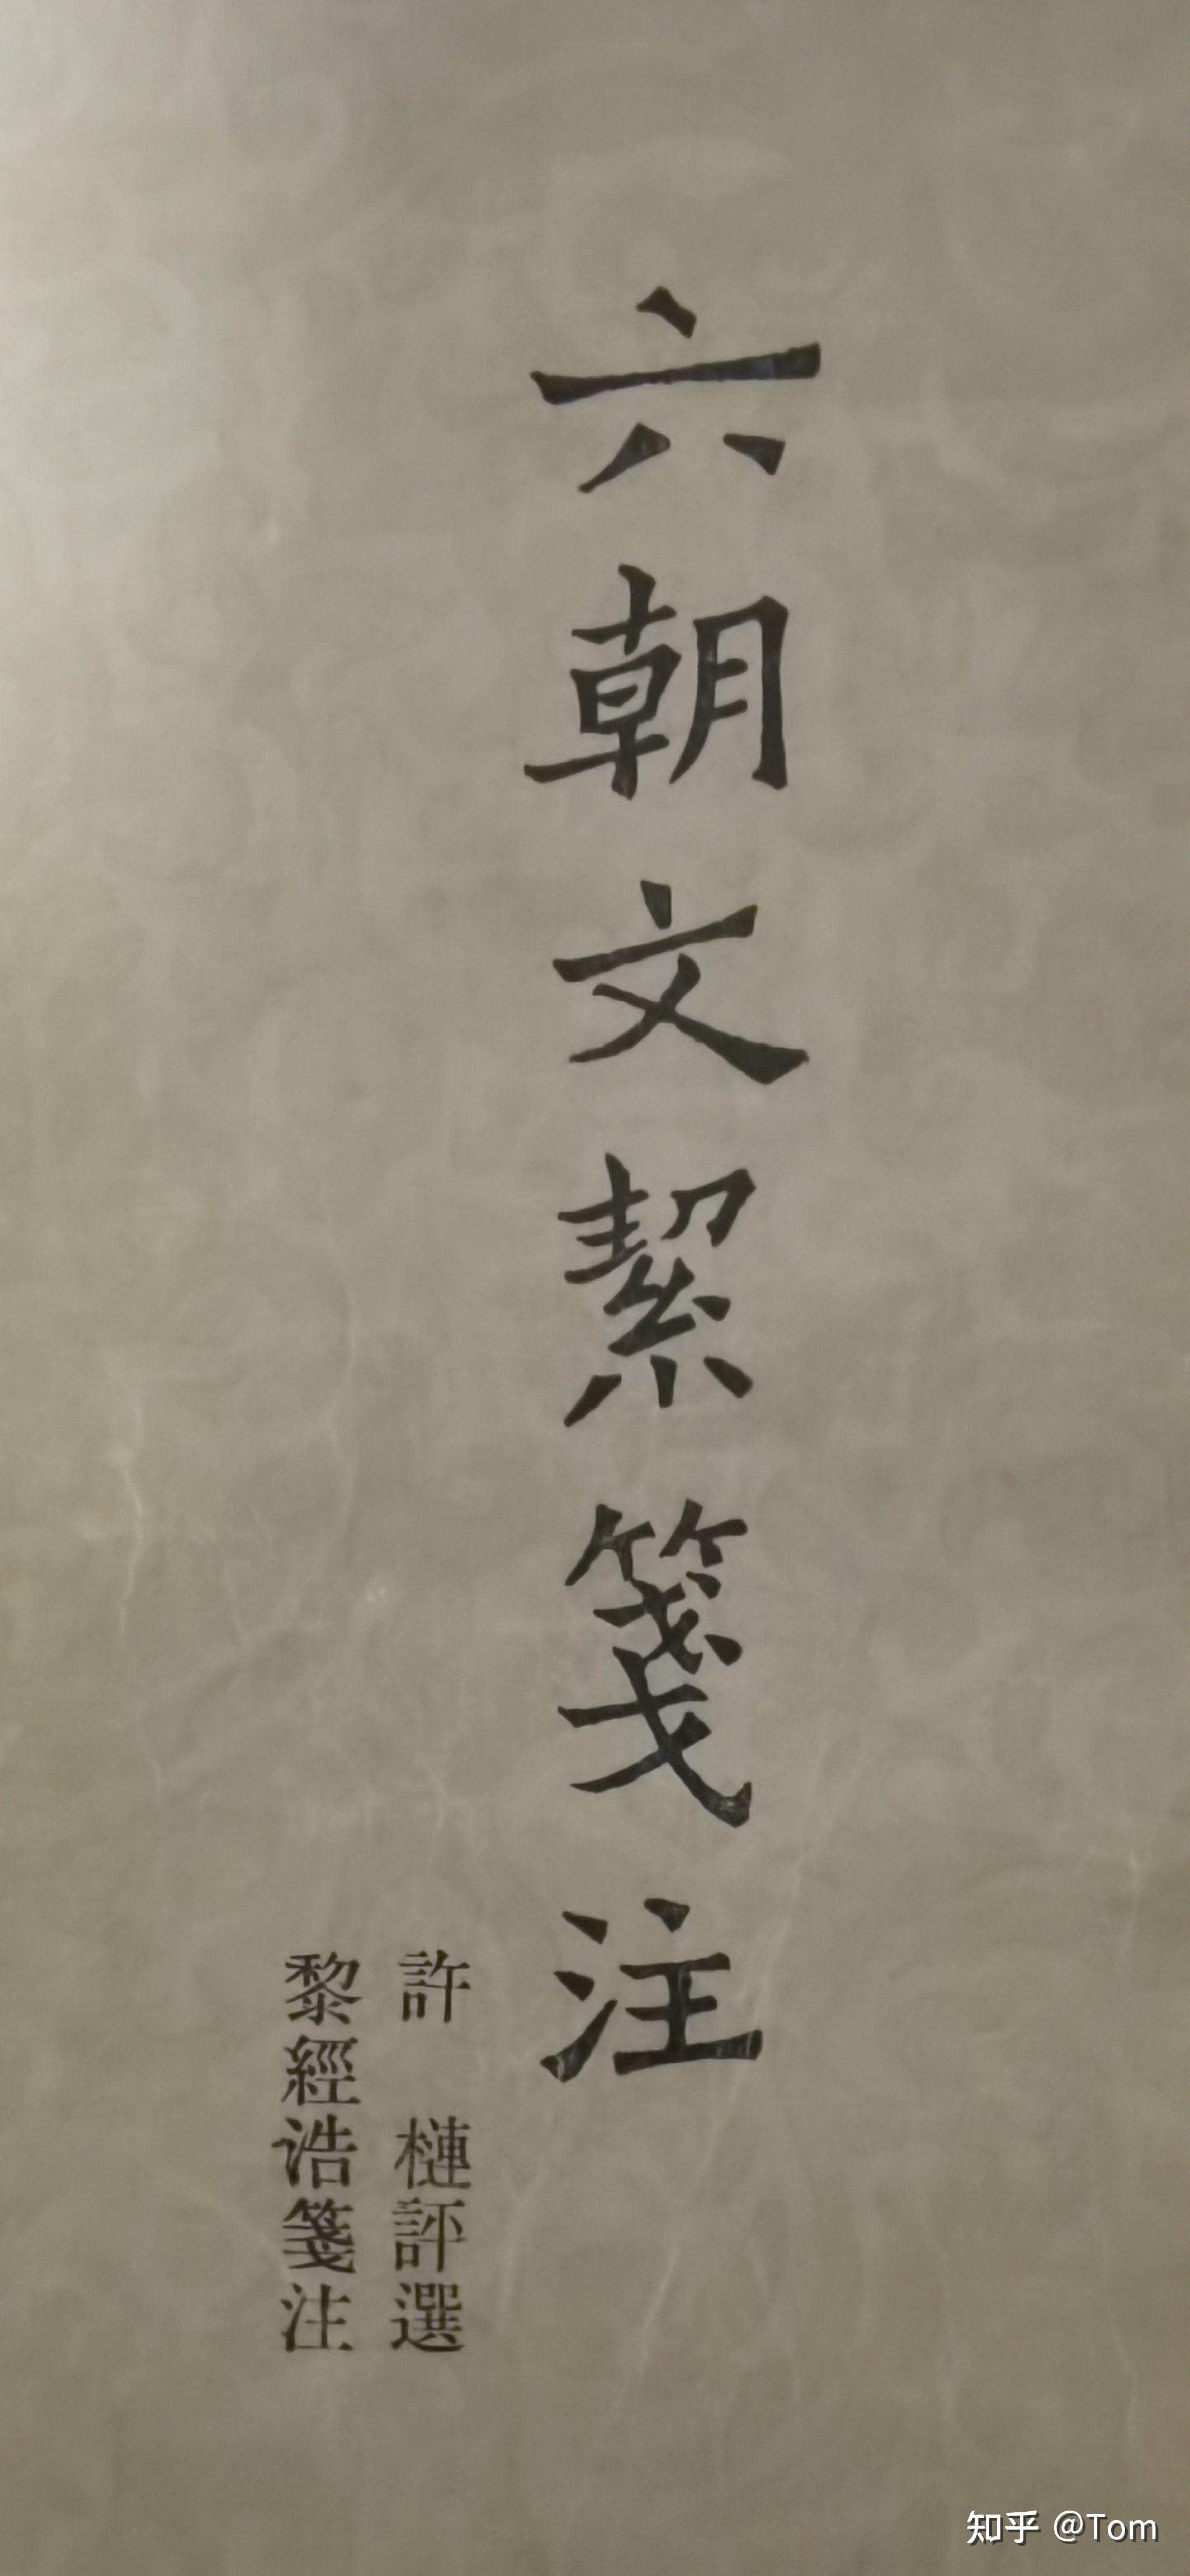 六朝文絜箋注
許 槤評選
黎經诰箋注
知乎 @Tom